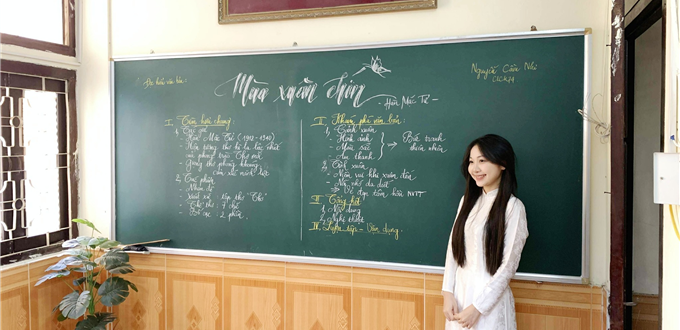 Đọc hiểu văn bản:
Mùa xuân chín
- Hàn Mặc Tử -
Nguyễn Cẩm Nhi
I. Tìm hiểu chung
1. Tác giả
- Hàn Mặc Tử (1912 - 1940)
- Hồn thơ
phong trào Thơ mới
- Giọng thơ phóng khoáng
cảm xúc mãnh liệt
2. Tác phẩm
- Nhan đề
- Xuất xứ: tập thơ "
- Thể thơ: 7 chữ
- Bố cục: 2 phần
II. Khám phá văn bản:
1. Cảnh xuân
- Hình ảnh
- Màu sắc
- Âm thanh
Bức tranh
thiên nhiên
2. Tình xuân
- Niềm vui khi xuân đến
- Nỗi nhớ da diết
→ Vẻ đẹp tâm hồn NVTT
III. Tổng kết
1. Nội dung
2. Nghệ thuật
IV. Luyện tập - Vận dụng.